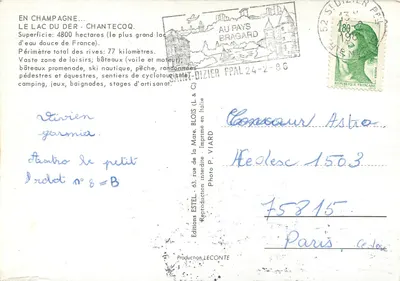 EN CHAMPAGNE...
LE LAC DU DER - CHANTECOQ.
Superficie: 4800 hectares (le plus grand lac
d'eau douce de France).
Périmètre total des rives: 77 kilomètres.
Vaste zone de loisirs; bateaux (voile et moteur)
bateaux promenade, ski nautique, pêche, randonnées
pédestres et équestres, sentiers de cyclotourisme
camping, jeux, baignades, stages d'artisanat.
AU PAYS
BRAGARD
SAINT-DIZIER PPAL 24-2-86
52 ST DIZIER PPAL
1,80
Editions ESTEL - 63, rue de la Mare, BLOIS (L & C)
Reproduction interdite - Imprimé en Italie
Photo P. VIARD
Production LECONTE
Vivien
Astro le petit
n° 8 = B
Concours Astro
1503
75815
Paris